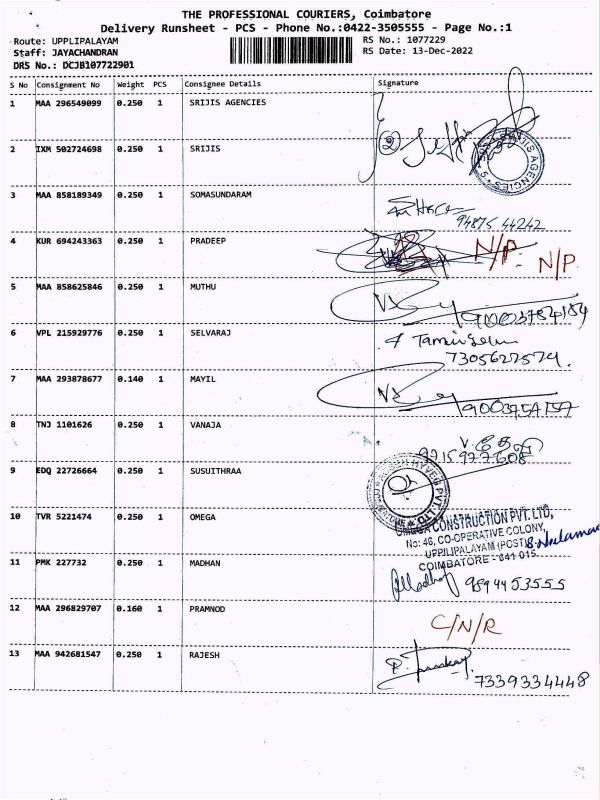 THE PROFESSIONAL COURIERS, Coimbatore
Delivery Runsheet - PCS - Phone No.:0422-3505555 - Page No.:1
Route: UPPLIPALAYAM
RS No.: 1077229
Staff: JAYACHANDRAN
RS Date: 13-Dec-2022
DRS No.: DCJB107722901
S No Consignment No Weight PCS Consignee Details Signature
1 MAA 296549099 0.250 1 SRIJIS AGENCIES
2 IXM 502724698 0.250 1 SRIJIS
AGENCIES
3 MAA 858189349 0.250 1 SOMASUNDARAM
94875 44242
4 KUR 694243363 0.250 1 PRADEEP N/P. N/P
5 MAA 858625846 0.250 1 MUTHU
6 VPL 215929776 0.250 1 SELVARAJ
7305627574.
7 MAA 293878677 0.140 1 MAYIL
8 TNJ 1101626 0.250 1 VANAJA
9715977608
9 EDQ 22726664 0.250 1 SUSUITHRAA
10 TVR 5221474 0.250 1 OMEGA
OMEGA CONSTRUCTION PVT. LTD,
No: 46, CO-OPERATIVE COLONY,
UPPILIPALAYAM (POST)
COIMBATORE - 641 015.
11 PMK 227732 0.250 1 MADHAN
9894453555
12 MAA 296829707 0.160 1 PRAMNOD C/N/R
13 MAA 942681547 0.250 1 RAJESH
7339334448